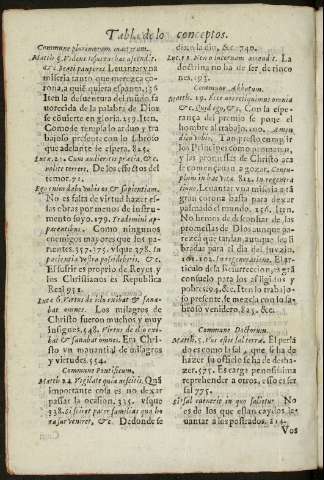 Tabla de los conceptos.
Commune plurimorum martyrum.
Matth. 5. Videns Iesus turbas ascendit,
&c. Beati pauperes. Leuantar vna
miseria tanto que merezca co-
rona, a quiē quiera espanta. 136
Iten la desuentura del mūdo fa
uorecida de la palabra de Dios
se cōuierte en gloria. 139. Iten,
Como se templa lo arduo y tra
bajoso presente con lo libroso
que adelante se espera. 825.
Luc. 21. Cum audieritis prælia, &c.
nolite terreri. De los efectos del
temor. 971.
Ego enim dabo vobis os & sapientiam.
No es falta de virtud hazer es-
sas obras por menos de instru-
mento 670. 179. Trademini à p-
parentibus. Como ningunos
enemigos mayores que los pa-
rientes. 377. vsque 378. In
patientia vestra possidebitis, &c.
El sufrir es proprio de Reyes y
los Christianos es Republica
Real 932.
Luc. 6. Virtus de illo exibat & sana-
bat omnes. Los milagros de
Christo fueron muchos y muy
insignes. 548. Virtus de illo exi-
bat & sanabat omnes. Era Chri-
sto vn manantial de milagros
y virtudes. 554.
Commune Pontificum.
Matth. 24. Vigilate quia nescitis. Quā
importante cosa es no dexar
passar la ocasion. 335. vsque
338. Si sciret pater familias qua ho
ra fur veniret, &c. Donde se
dize la dio, &c. 740.
Luc. 11. Nemo lucernam accendit. La
doctrina no ha de ser de rinco
nes. 193.
Commune Abbatum.
Matth. 19. Ecce nos reliquimus omnia
&c. Quid ergo, &c. En la espe-
rança del premio se pone el
hombre al trabajo. 100. Amen
dico vobis. Tan presto cumplir
los Principes como prometer,
y las promessas de Christo acá
se començaron a gozar. Centu-
plum in hac vita. 822. In regenera
tione. Leuantar vna miseria a tā
gran corona basta para dexar
pasmado el mundo. 136. Iten,
No hemos de desconfiar de las
promessas de Dios aunque pa-
rezca que tardan, aunque las li
bradas para el dia del juyzio.
101. 102. In regeneratione. El ar-
ticulo de la Resurreccion, es grā
consuelo para los afligidos y
pobres 94. &c. Iten lo trabajo-
so presente, se mezcla con la li-
broso venidero. 825. &c.
Commune Doctorum.
Matth. 5. Vos estis sal terræ. El perla
do es como la sal, que se ha de
hazer su oficio se ha de desha-
zer. 575. Es carga penosissima
reprehender a otros, esso es ser
sal 775.
Si sal euanuerit in quo salietur. No
es de los que estan caydos le-
uantar a los postrados. 214.
Vos